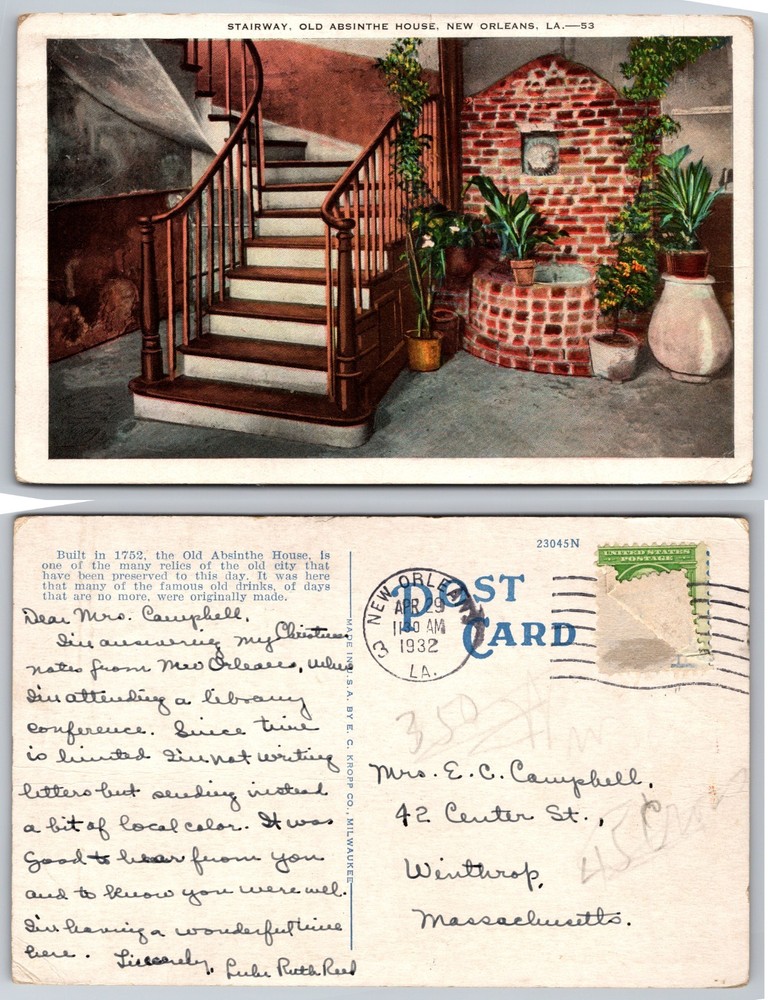 STAIRWAY, OLD ABSINTHE HOUSE, NEW ORLEANS, LA.—53
23045N
Built in 1752, the Old Absinthe House, is
one of the many relics of the old city that
have been preserved to this day. It was here
that many of the famous old drinks, of days
that are no more, were originally made.
Dear Mrs. Campbell,
I'm answering my Christmas
notes from New Orleans, where
I'm attending a library
conference. Since time
is limited I'm not writing
letters but sending instead
a bit of local color. It was
good to hear from you
and to know you were well.
I'm having a wonderful time
here. Sincerely,
Ruth Reed
MADE IN U.S.A. BY E. C. KROPP CO., MILWAUKEE
POST
CARD
NEW ORLEANS
APR 29
11 30 AM
1932
LA.
3
UNITED STATES
POSTAGE
350
Mrs. E. C. Campbell,
42 Center St.,
Winthrop,
Massachusetts.
45